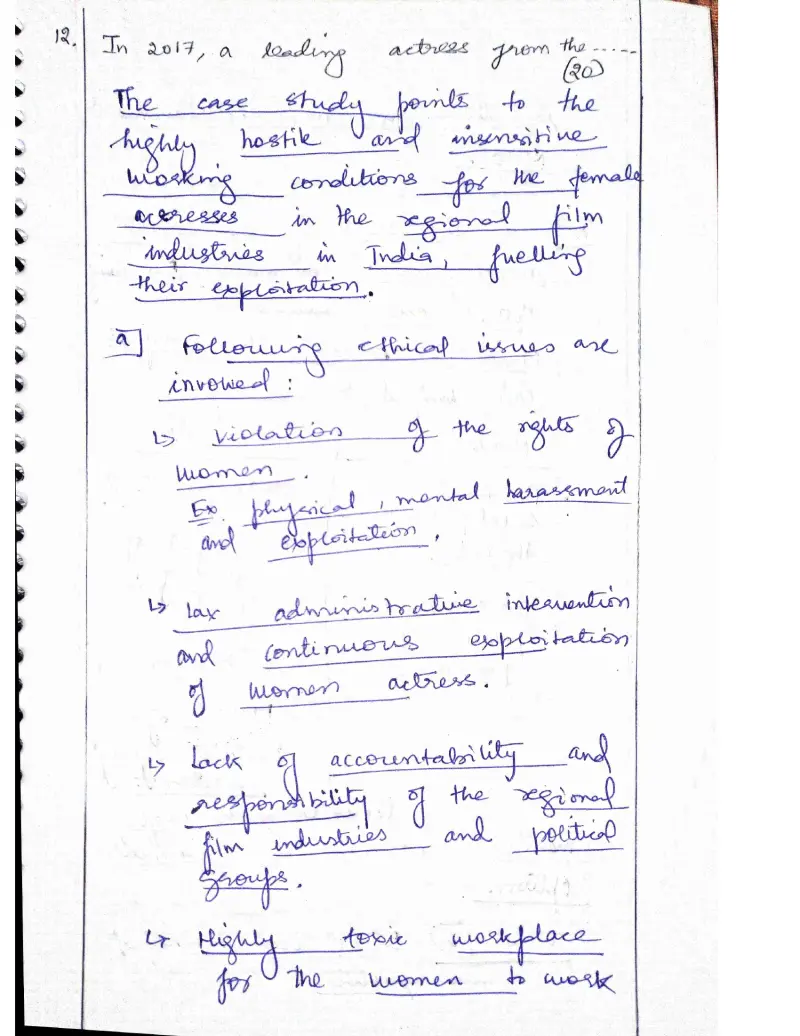 12. In 2017, a leading actress from the .....
(20)
The case study points to the
highly hostile and insensitive
working conditions for the female
actresses in the regional film
industries in India, fuelling
their exploitation.
a] Following ethical issues are
involved :
↳ Violation of the rights of
women.
Ex physical, mental harassment
and exploitation.
↳ Lax administrative intervention
and continuous exploitation
of women actress.
↳ Lack of accountability and
responsibility of the regional
film industries and political
groups.
↳ Highly toxic workplace
for the women to work